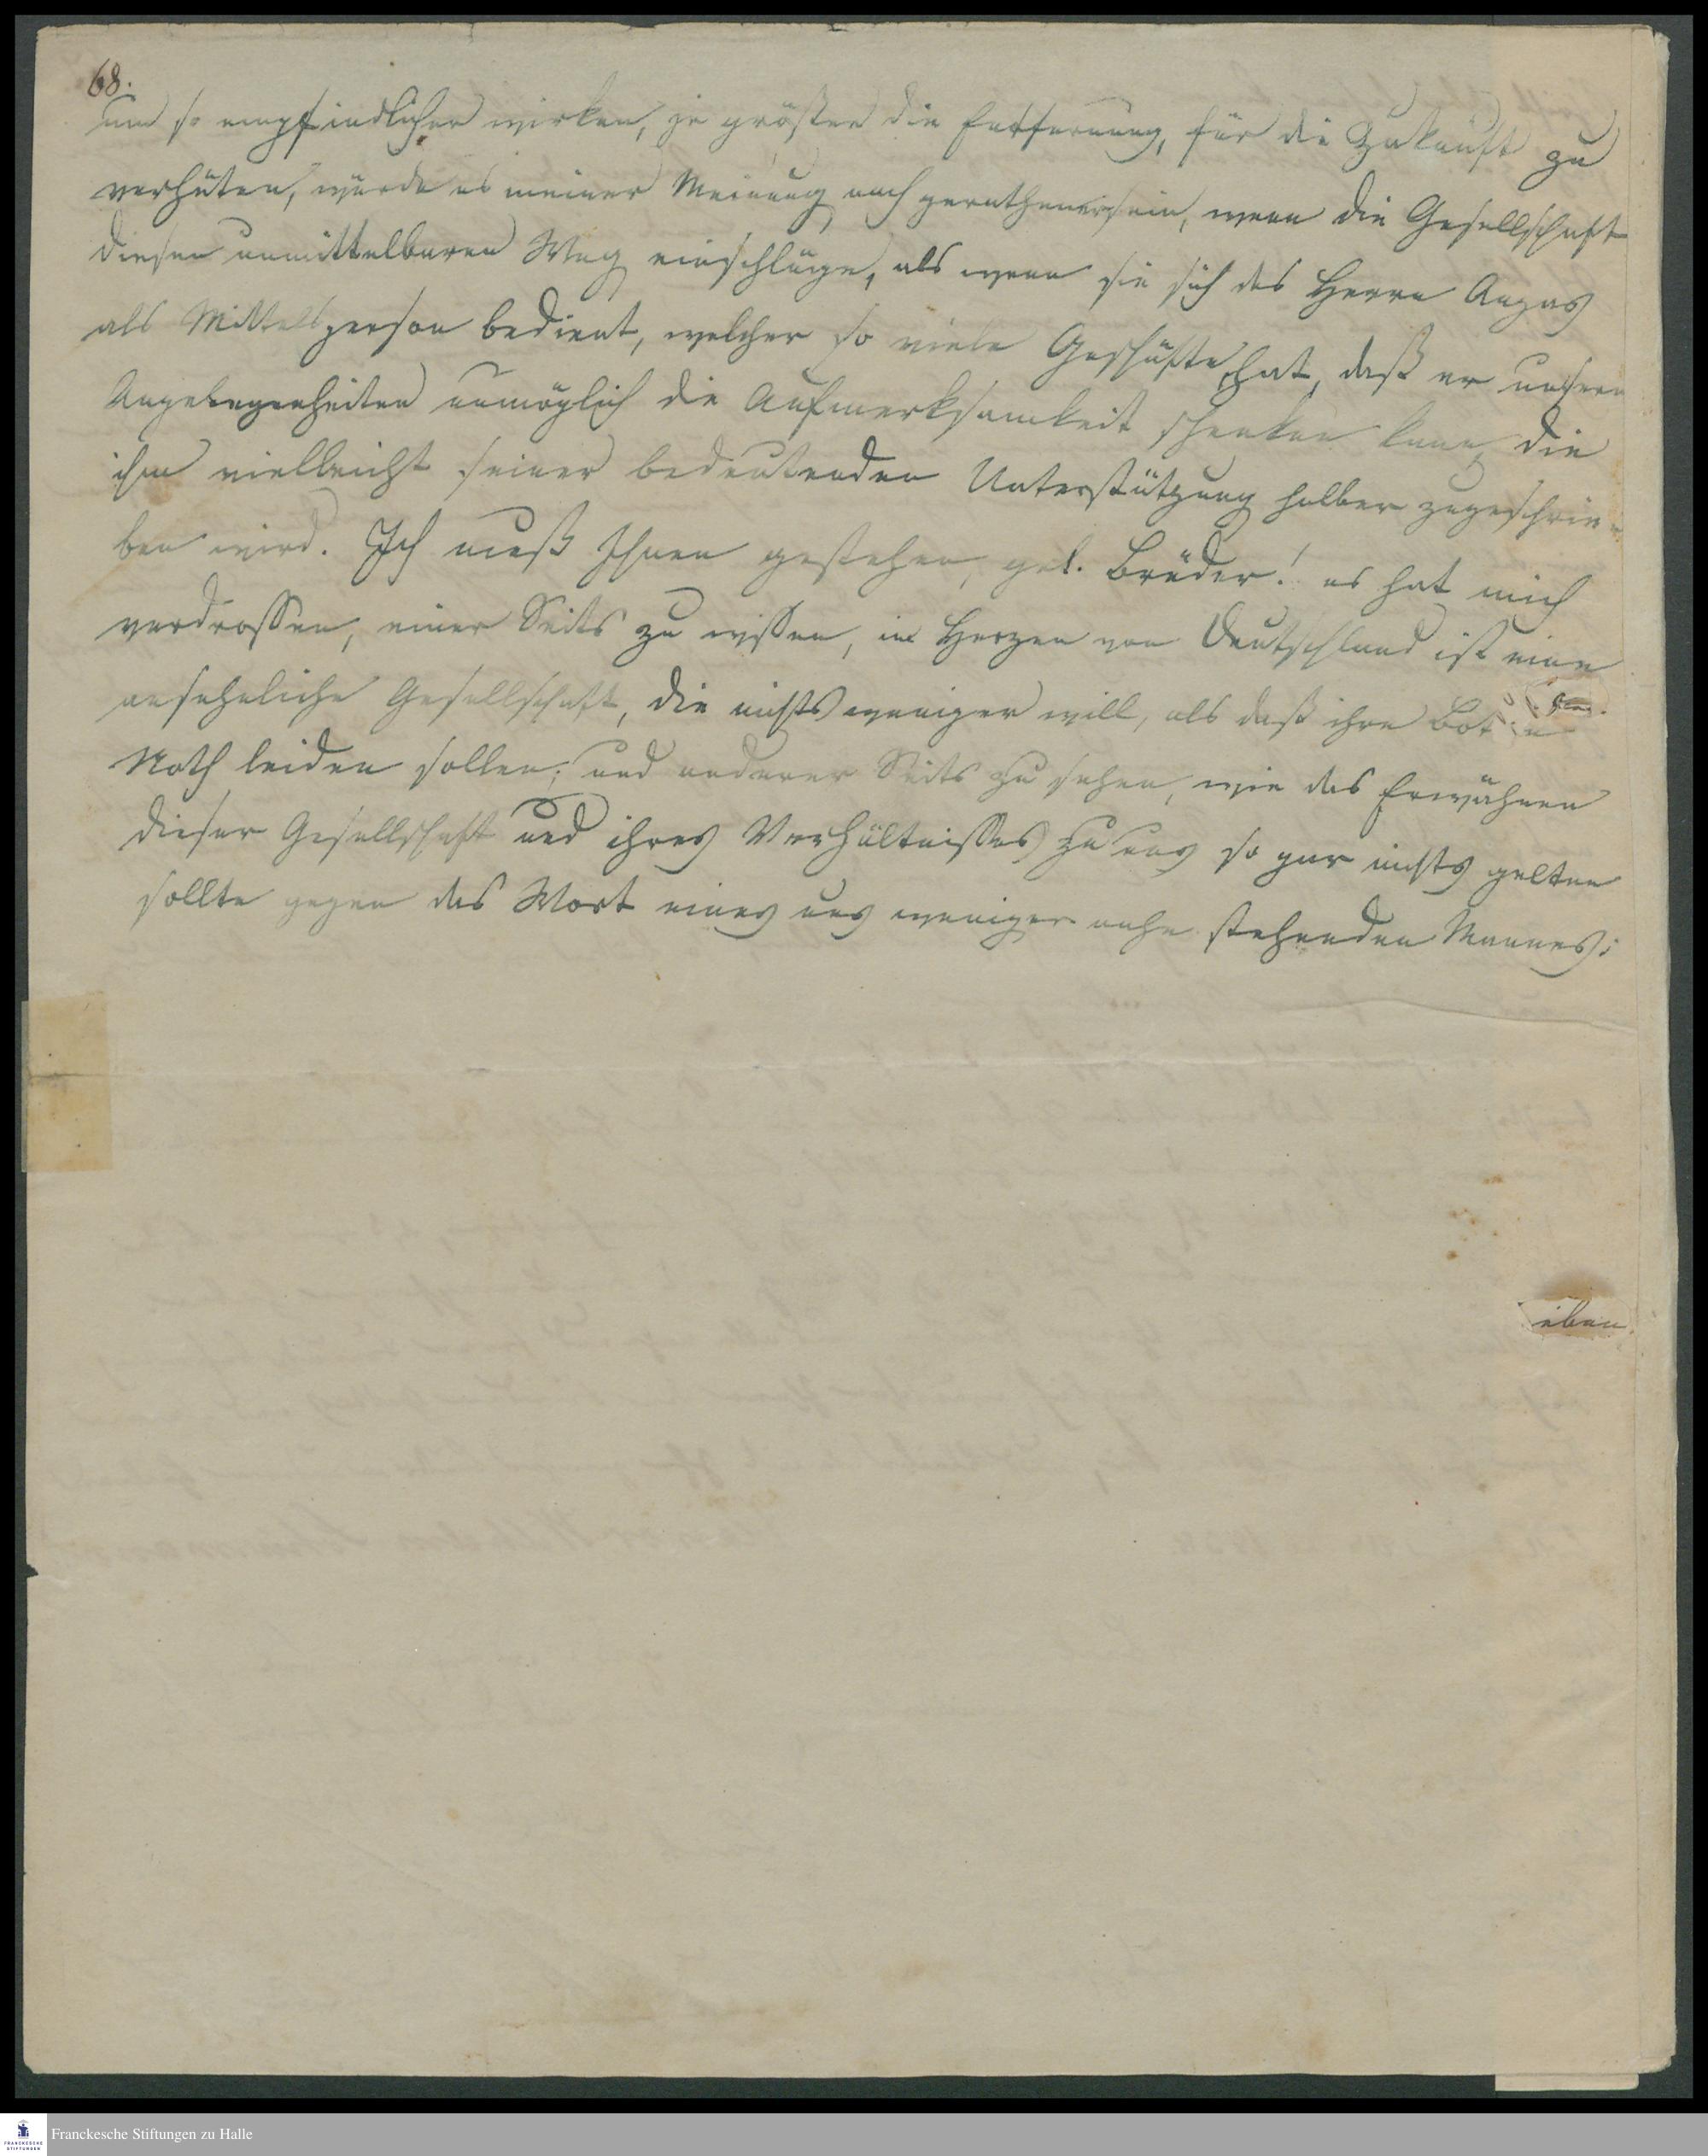 68.
um so empfindlicher wirken, je größer die Entfernung, für die Zukunft zu
verhüten, würde es meiner Meinung nach gerathener sein, wenn die Gesellschaft
diesen unmittelbaren Weg einschlüge, als wenn sie sich des Herrn Angas
als Mittelsperson bedient, welcher so viele Geschäfte hat, daß er unsern
Angelegenheiten unmöglich die Aufmerksamkeit schenken kann, die
ihm vielleicht seiner bedeutenden Unterstützung halber zugeschrie-
ben wird. Ich muß Ihnen gestehen, gel. Brüder! es hat mich
verdrossen, einer Seits zu wissen, im Herzen von Deutschland ist eine
ansehnliche Gesellschaft, die nichts weniger will, als daß ihre Boten
Noth leiden sollen, und anderer Seits zu sehen, wie das Erwähnen
dieser Gesellschaft und ihres Verhältnisses zu uns so gar nichts gelten
sollte gegen das Wort eines uns weniger nahe stehenden Mannes;
eben
Franckesche Stiftungen zu Halle
FRANCKESCHE
STIFTUNGEN